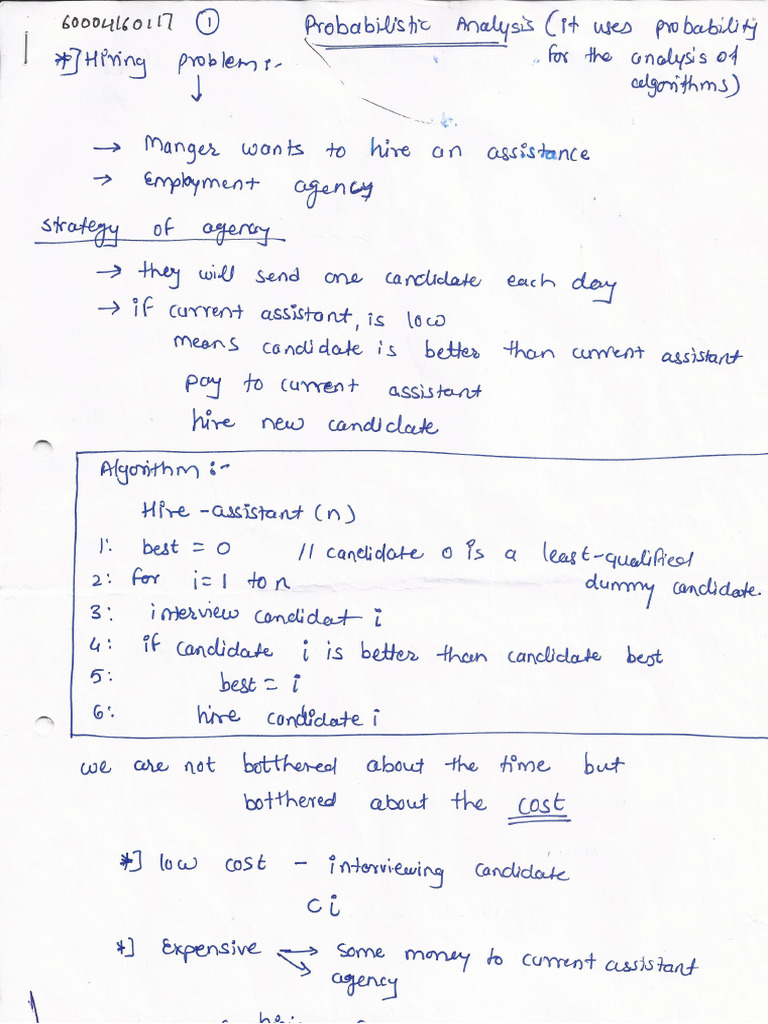 60004160117 1 Probabilistic Analysis (it uses probability
for the analysis of
algorithms)
*] Hiring problem:-
→ Manger wants to hire an assistance
→ Employment agency
strategy of agency
→ they will send one candidate each day
→ if current assistant, is low
means candidate is better than current assistant
pay to current assistant
hire new candidate
Algorithm:-
Hire-assistant (n)
1: best = 0 // candidate 0 is a least-qualified
dummy candidate.
2: for i=1 to n
3: interview candidat i
4: if candidate i is better than candidate best
5: best = i
6: hire candidate i
we are not botthered about the time but
botthered about the cost
*] low cost - interviewing candidate
ci
*] Expensive → some money to current assistant
→ agency